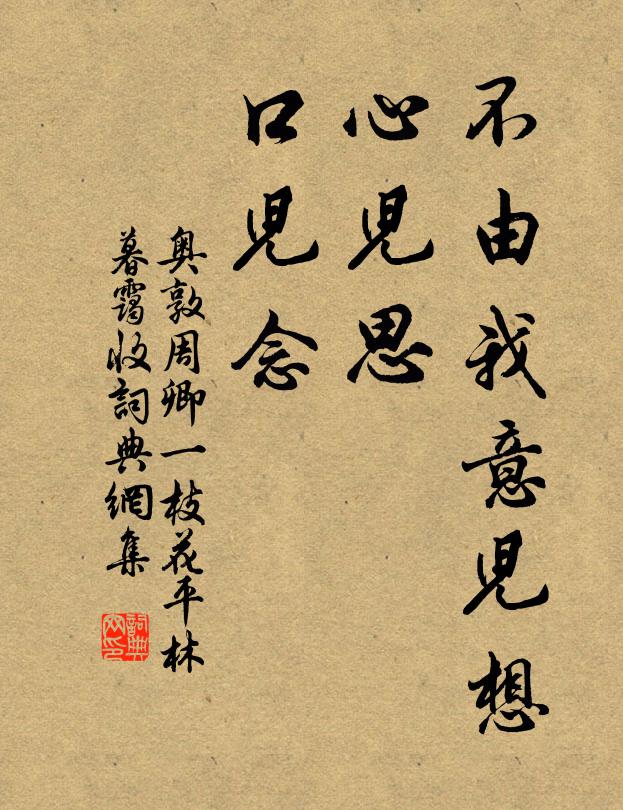 不由我意兒想
心兒思
口兒念
奧敦周卿一枝花平林
暮靄收詞典網集
詞典網印